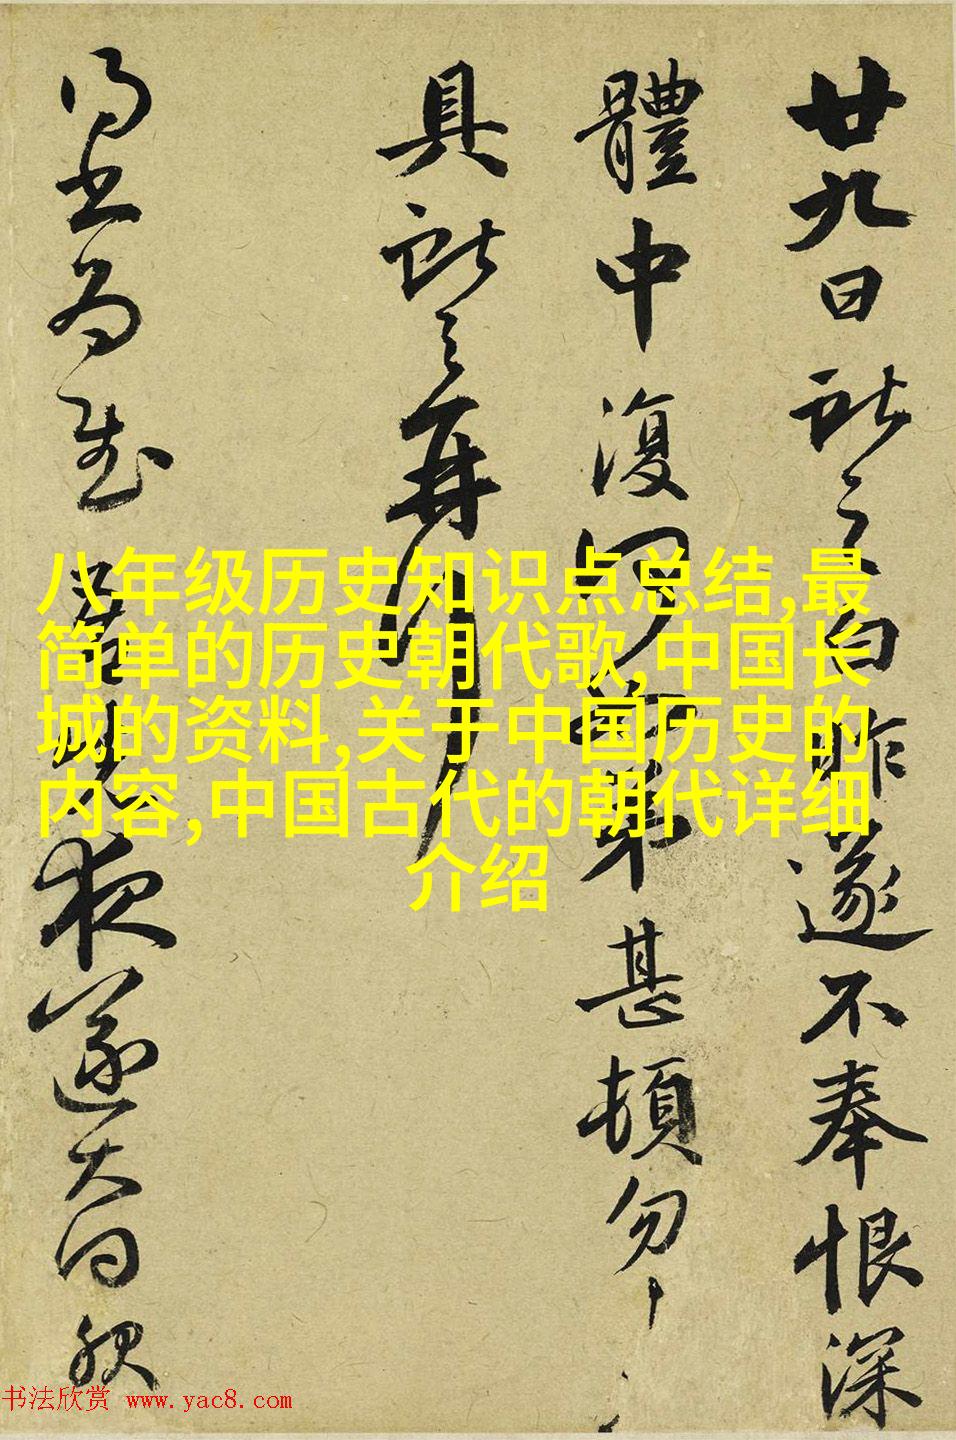 廿九日獻之白昨遂不奉恨深
體中復何如弟甚頓勿
具獻之再拜
夜遂大
八年级历史知识点总结,最
简单的历史朝代歌,中国长
城的资料,关于中国历史的
内容,中国古代的朝代详细
介绍
书法欣赏 www.yac8.com